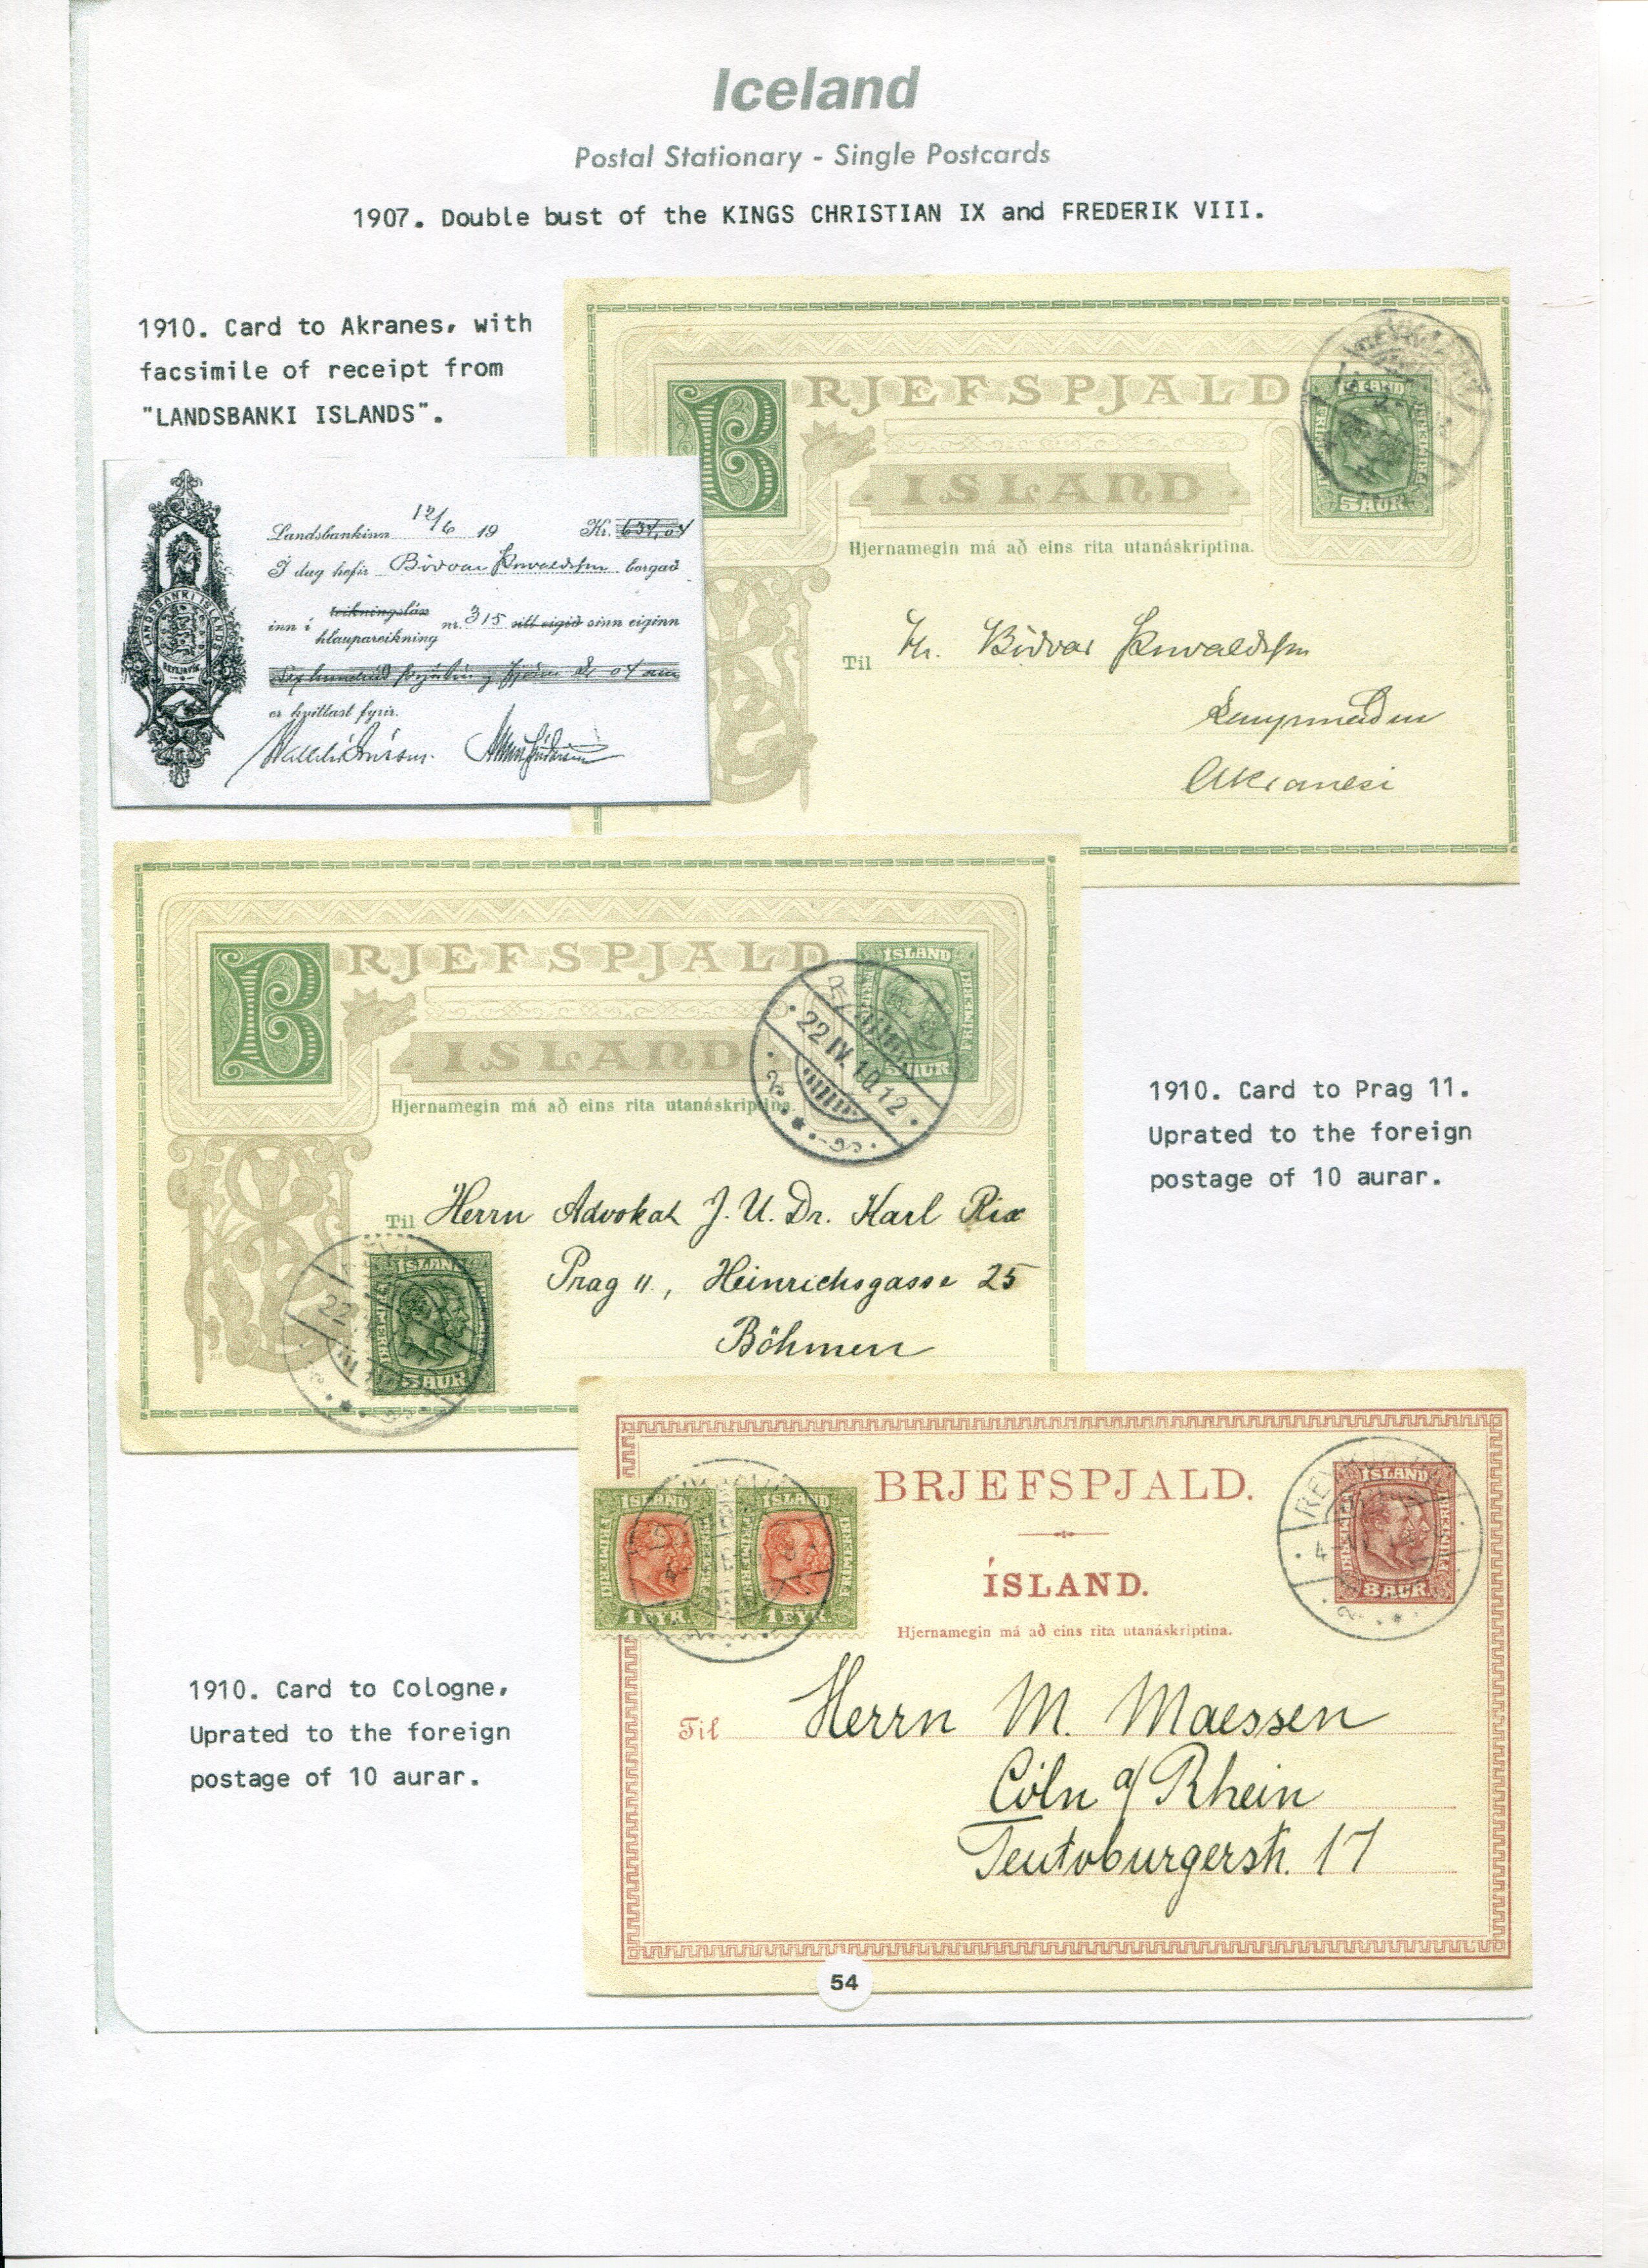 Iceland
Postal Stationary - Single Postcards
1907. Double bust of the KINGS CHRISTIAN IX and FREDERIK VIII.
1910. Card to Akranes, with
facsimile of receipt from
"LANDSBANKI ISLANDS".
BRJEFSPJALD
ISLAND
Hjernamegin má að eins rita utanáskriptina.
ISLAND
FRIMERKI
5 AUR
Til Hr. Bödvar Þorvaldsson
Kaupmadur
Akranesi
LANDSBANKI ISLANDS
REYKJAVIK
Landsbankinn 12/6 19 Kr. 634,04
Í dag hefir Bödvar Þorvaldsson borgað
inn í teikningslán nr. 315 sitt eigið sinn eiginn
hlaupareikning
er kvittast fyrir.
BRJEFSPJALD
ISLAND
Hjernamegin má að eins rita utanáskriptina.
ÍSLAND
FRIMERKI
5 AUR
22 IV. 10. 12
Til Herrn Advokat J. U. Dr. Karl Rix
Prag II., Heinrichsgasse 25
Böhmen
ÍSLAND
5 AUR
22
1910. Card to Prag 11.
Uprated to the foreign
postage of 10 aurar.
BRJEFSPJALD.
ÍSLAND.
Hjernamegin má að eins rita utanáskriptina.
ÍSLAND
FRIMERKI
1 EYR.
ÍSLAND
FRIMERKI
1 EYR.
ÍSLAND
FRIMERKI
8 AUR
Til Herrn M. Maessen
Cöln a/Rhein
Teutoburgerstr. 17
1910. Card to Cologne,
Uprated to the foreign
postage of 10 aurar.
54